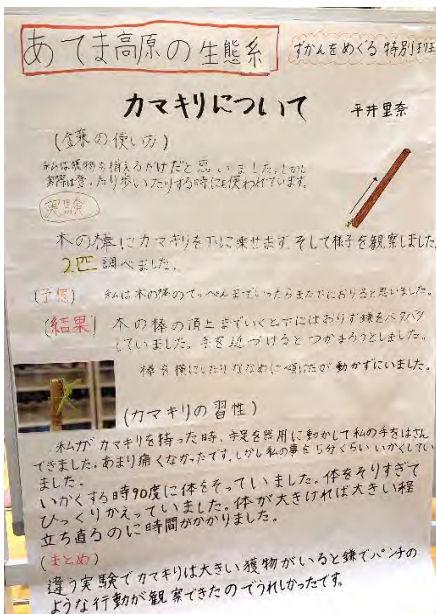 あてま高原の生態系
ずかんをめぐる特別
カマキリについて
平井里奈
(鎌の使い方)
私は獲物を捕えるだけだと思いました。しかし
実際は登ったり歩いたりする時にも使われています。
実験
木の棒にカマキリを下に乗せます。そして様子を観察しました。
2匹調べました。
(予想) 私は木の棒のてっぺんまでいったらまた下におりると思いました。
(結果) 木の棒の頂上までいくと下にはおりず鎌をバタバタ
していました。手を近づけるとつかまろうとしました。
棒を横にしたりななめに傾けたが動かずにいました。
(カマキリの習性)
私がカマキリを持った時、手足を器用に動かして私の手をはさん
できました。あまり痛くなかったです。しかし私の事を5分くらいいかくしてい
ました。
いかくする時90度に体をそっていました。体をそりすぎて
ひっくりかえっていました。体が大きければ大きい程
立ち直るのに時間がかかりました。
(まとめ)
違う実験でカマキリは大きい獲物がいると鎌でパンチの
ような行動が観察できたのでうれしかったです。